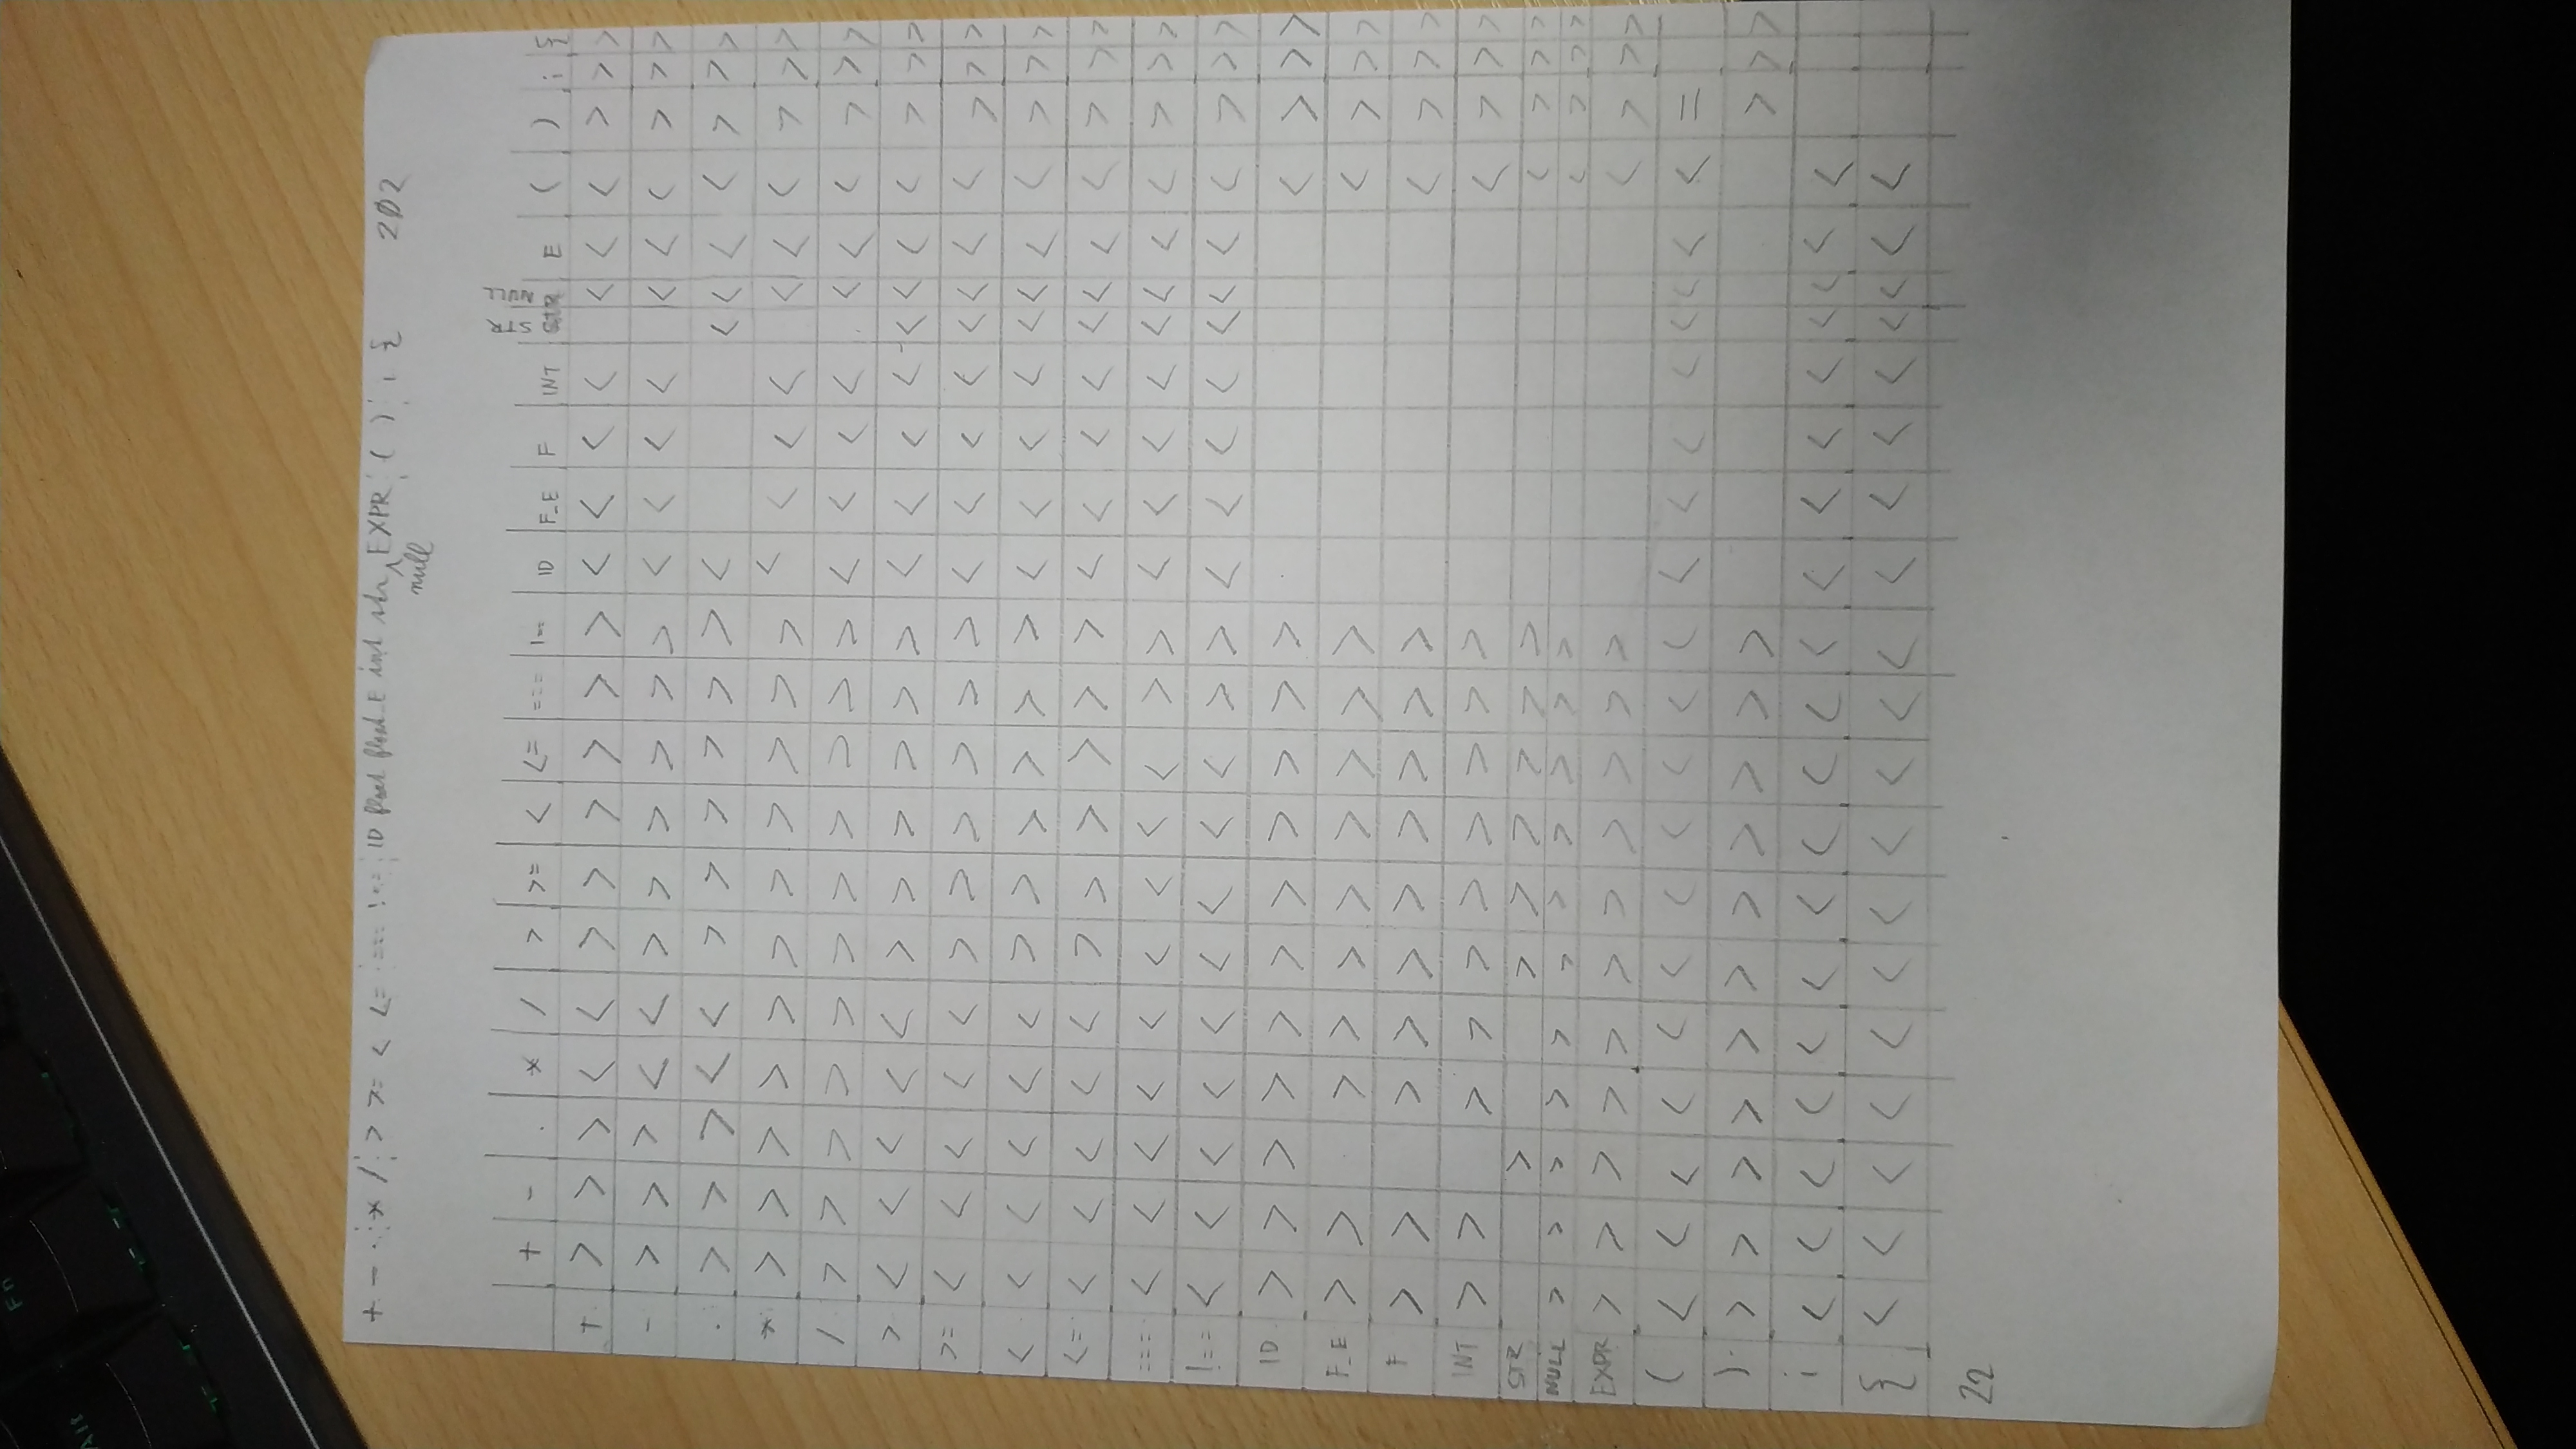 Fn
Alt
+ - . * / > >= < <= === !== ID float float_E int str EXPR ( ) ; { 202
null
+ - . * / > >= < <= === !== ID F_E F INT STR NULL E ( ) ; {
+ > > > < < > > > > > > < < < < < < < > > >
- > > > < < > > > > > > < < < < < < < > > >
. > > > < < > > > > > > < < < < < > > >
* > > > > > > > > > > > < < < < < < < > > >
/ > > > > > > > > > > > < < < < < < < > > >
> < < < < < > > > > > > < < < < < < < < > > >
>= < < < < < > > > > > > < < < < < < < < > > >
< < < < < < > > > > > > < < < < < < < < > > >
<= < < < < < > > > > > > < < < < < < < < > > >
=== < < < < < < < < < > > < < < < < < < < > > >
!== < < < < < < < < < > > < < < < < < < < > > >
ID > > > > > > > > > > > < > > >
F_E > > > > > > > > > > < > > >
F > > > > > > > > > > < > > >
INT > > > > > > > > > > < > > >
STR > > > > > > > < > > >
NULL > > > > > > > > > > > < > > >
EXPR > > > > > > > > > > > < > > >
( < < < < < < < < < < < < < < < < < < < =
) > > > > > > > > > > > > > >
; < < < < < < < < < < < < < < < < < < <
{ < < < < < < < < < < < < < < < < < < <
22